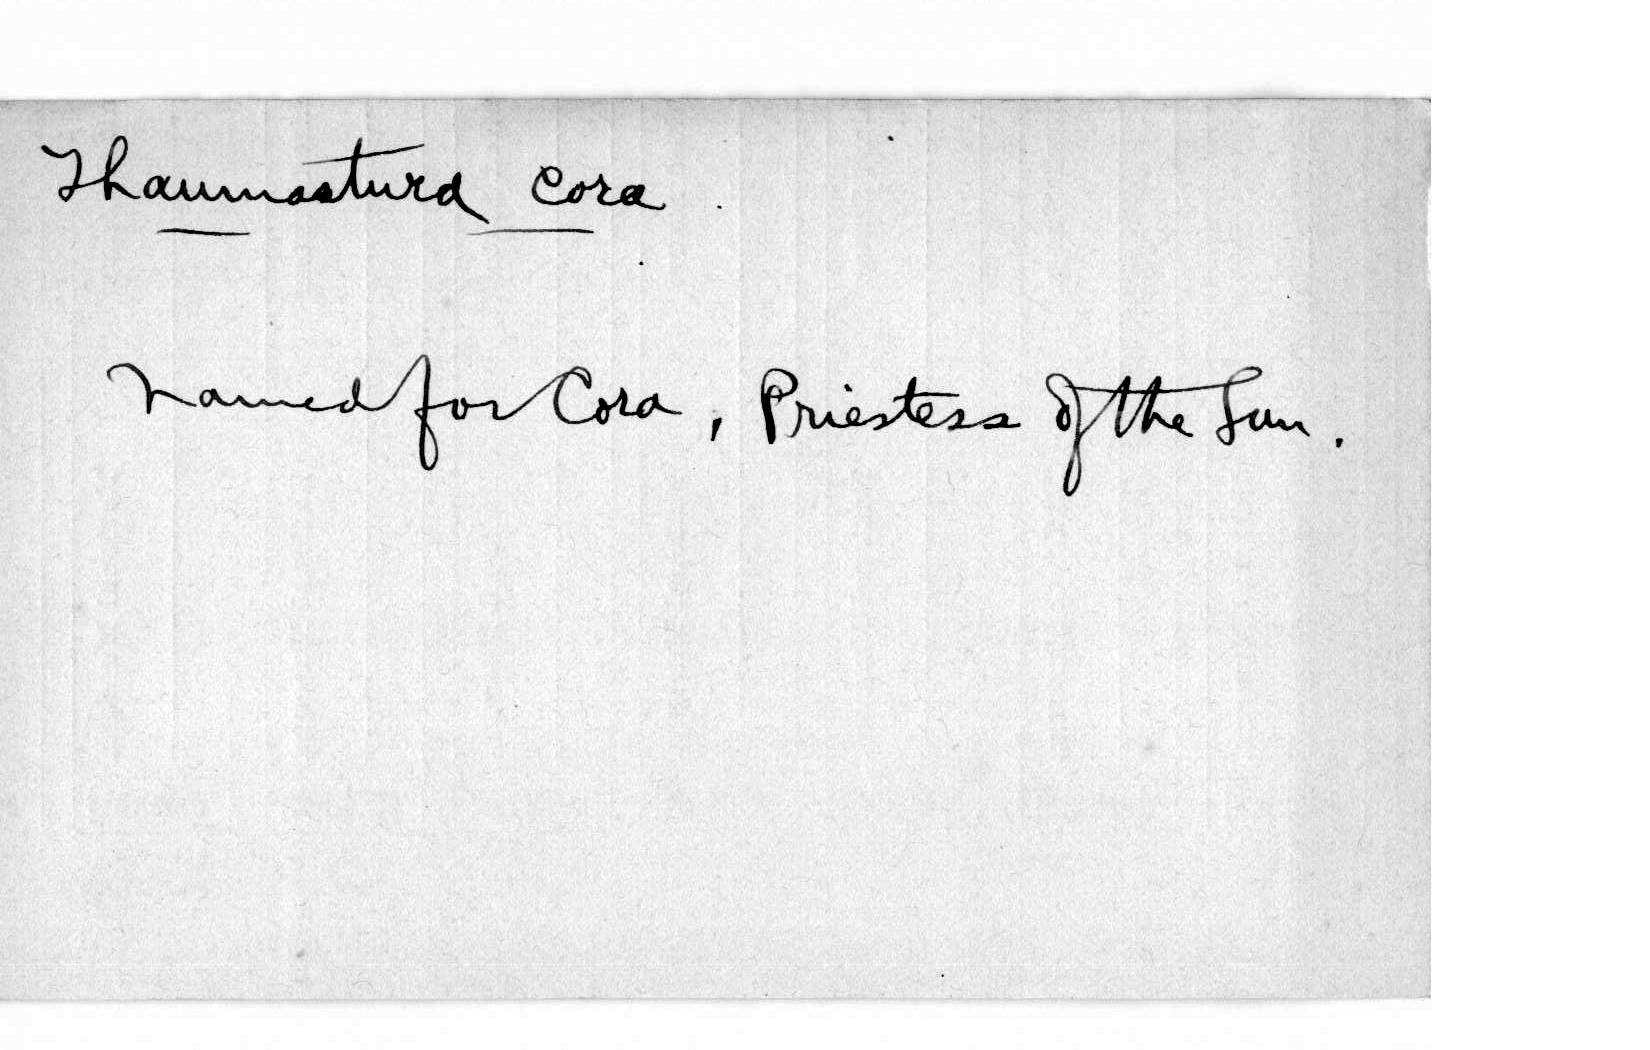 Thaumastura cora
Named for Cora, Priestess of the Sun.